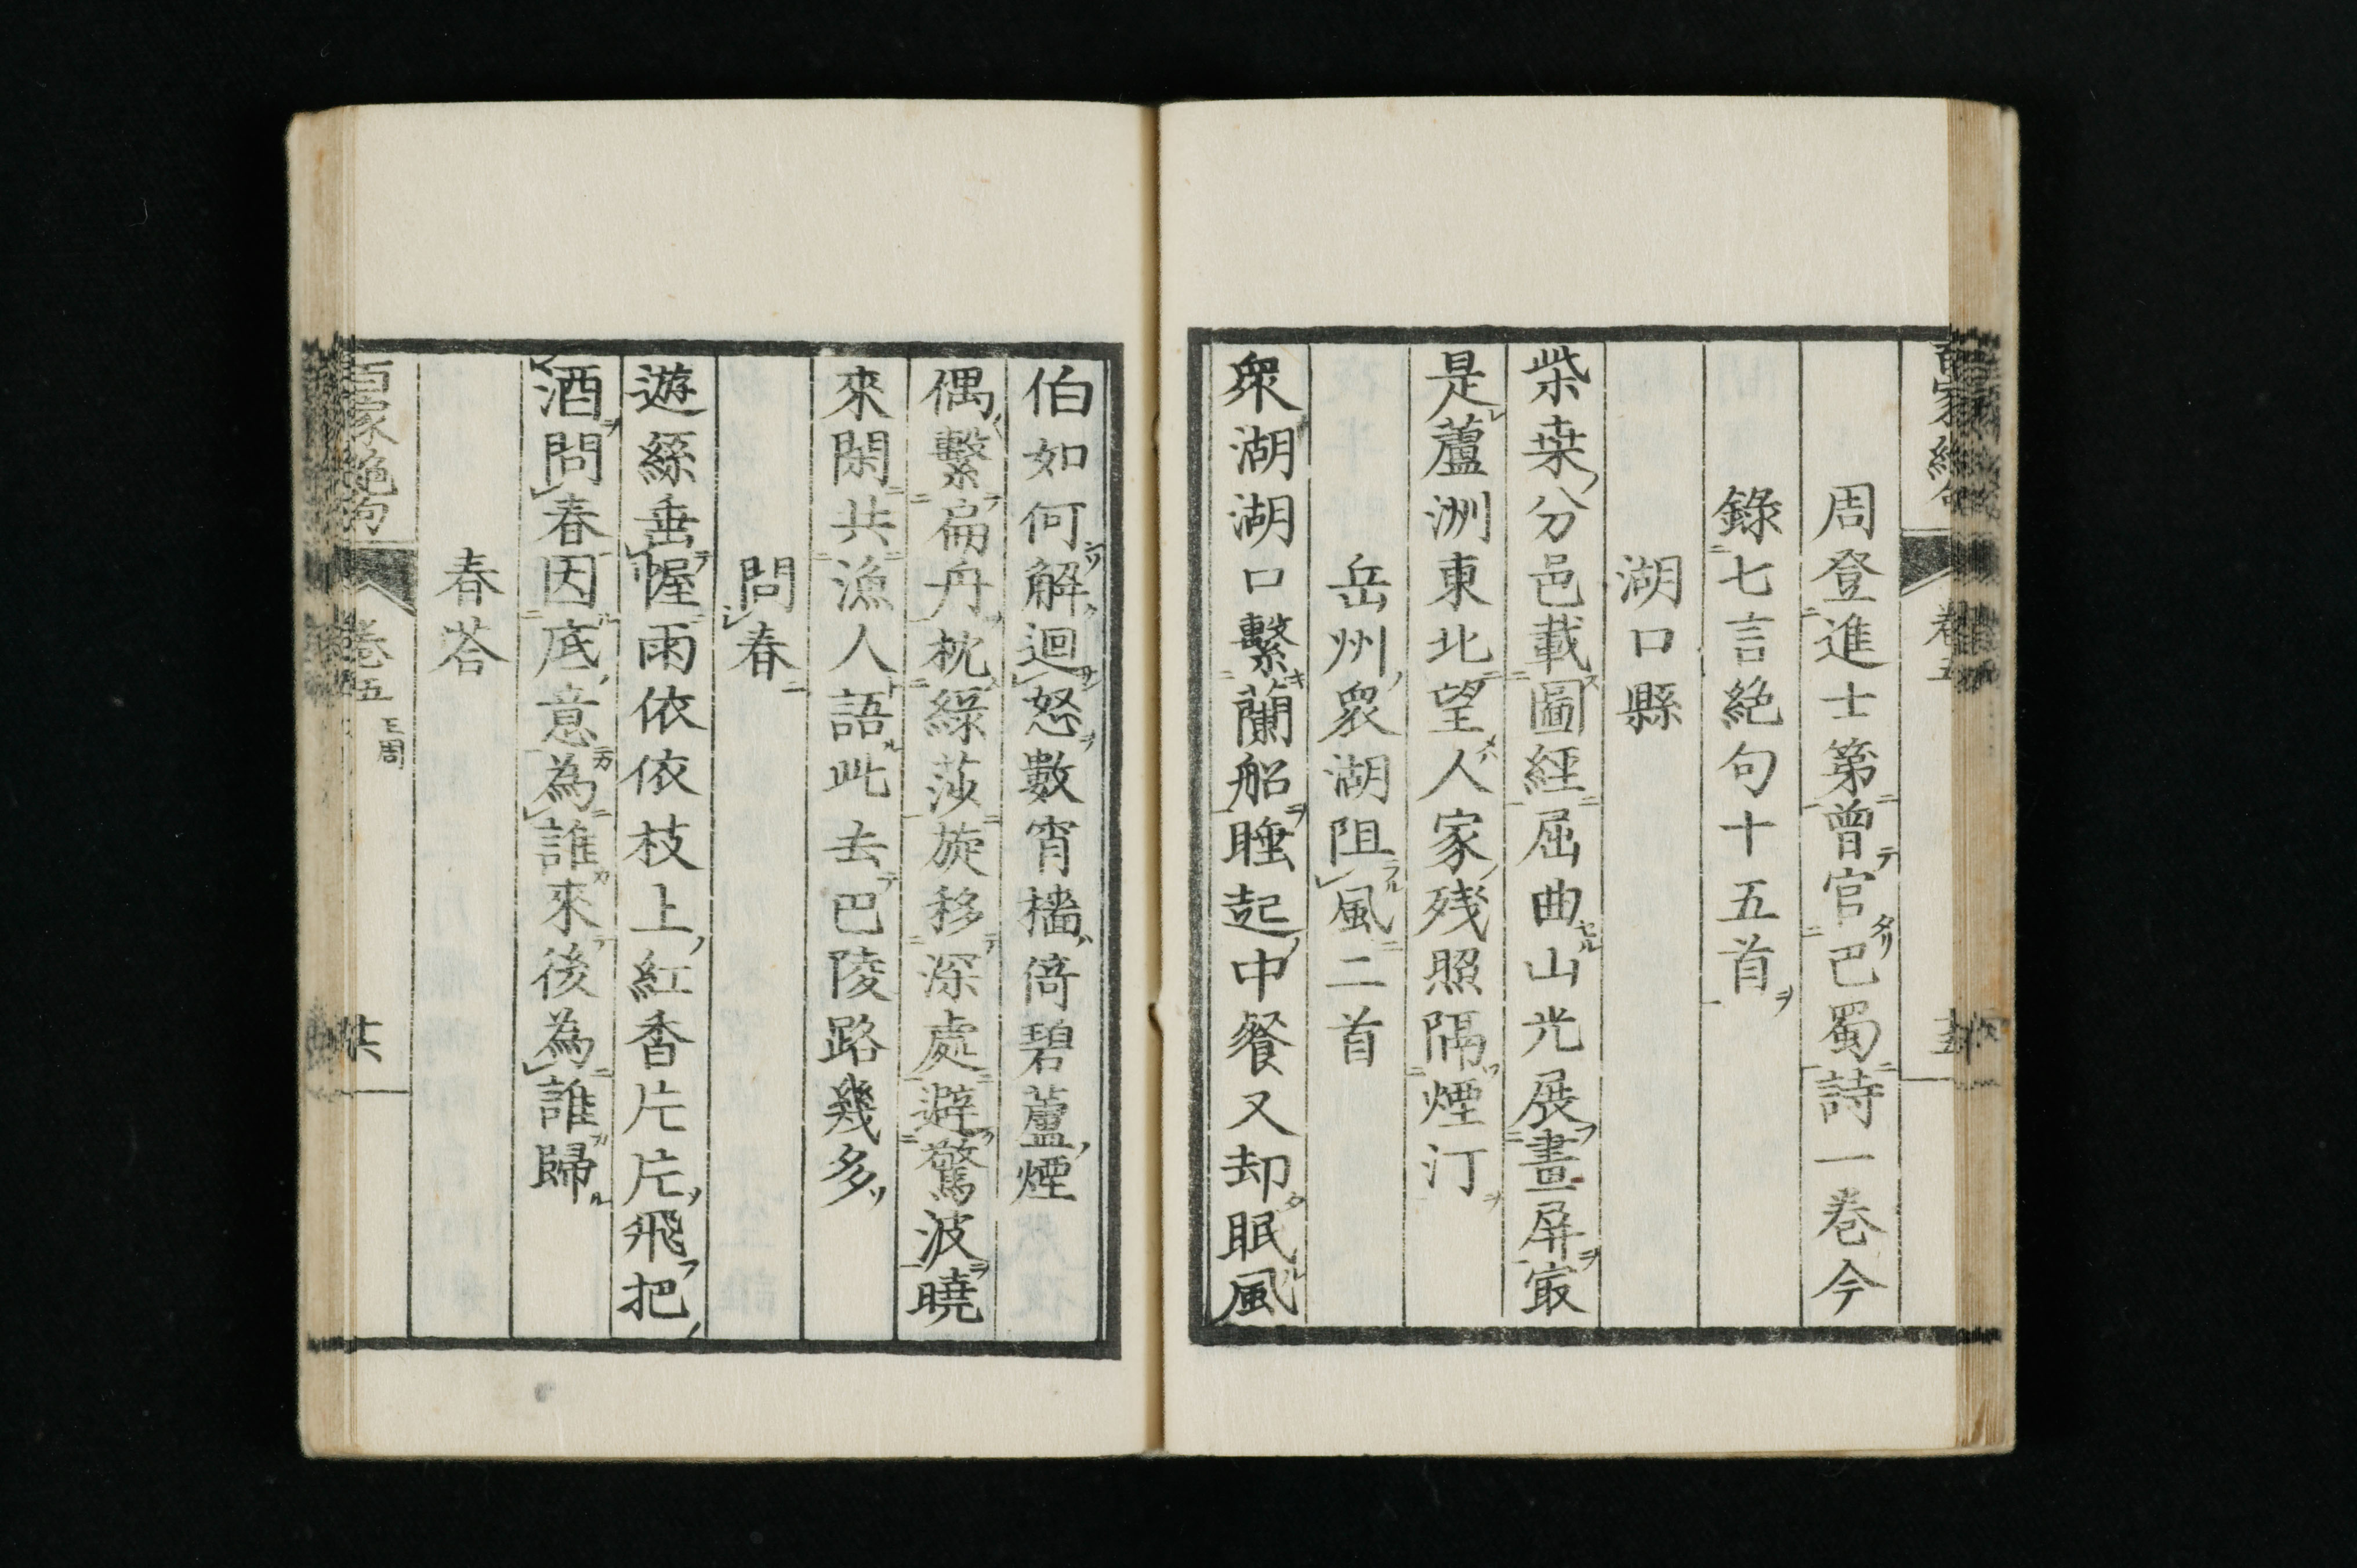 周登進士第曾官巴蜀詩一卷今
錄七言絕句十五首
湖口縣
柴桒分邑載圖經屈曲山光展畫屏㝡
是蘆洲東北望人家殘照隔煙汀
岳州衆湖阻風二首
衆湖湖口繫蘭船睡起中餐又却眠風
伯如何解迴怒數宵檣倚碧蘆煙
偶繫扁舟枕綠莎旋移深處避驚波曉
來閑共漁人語此去巴陵路幾多
問春
遊絲垂幄雨依依枝上紅香片片飛把
酒問春因底意為誰來後為誰歸
春荅
百家絕句
卷五
王周